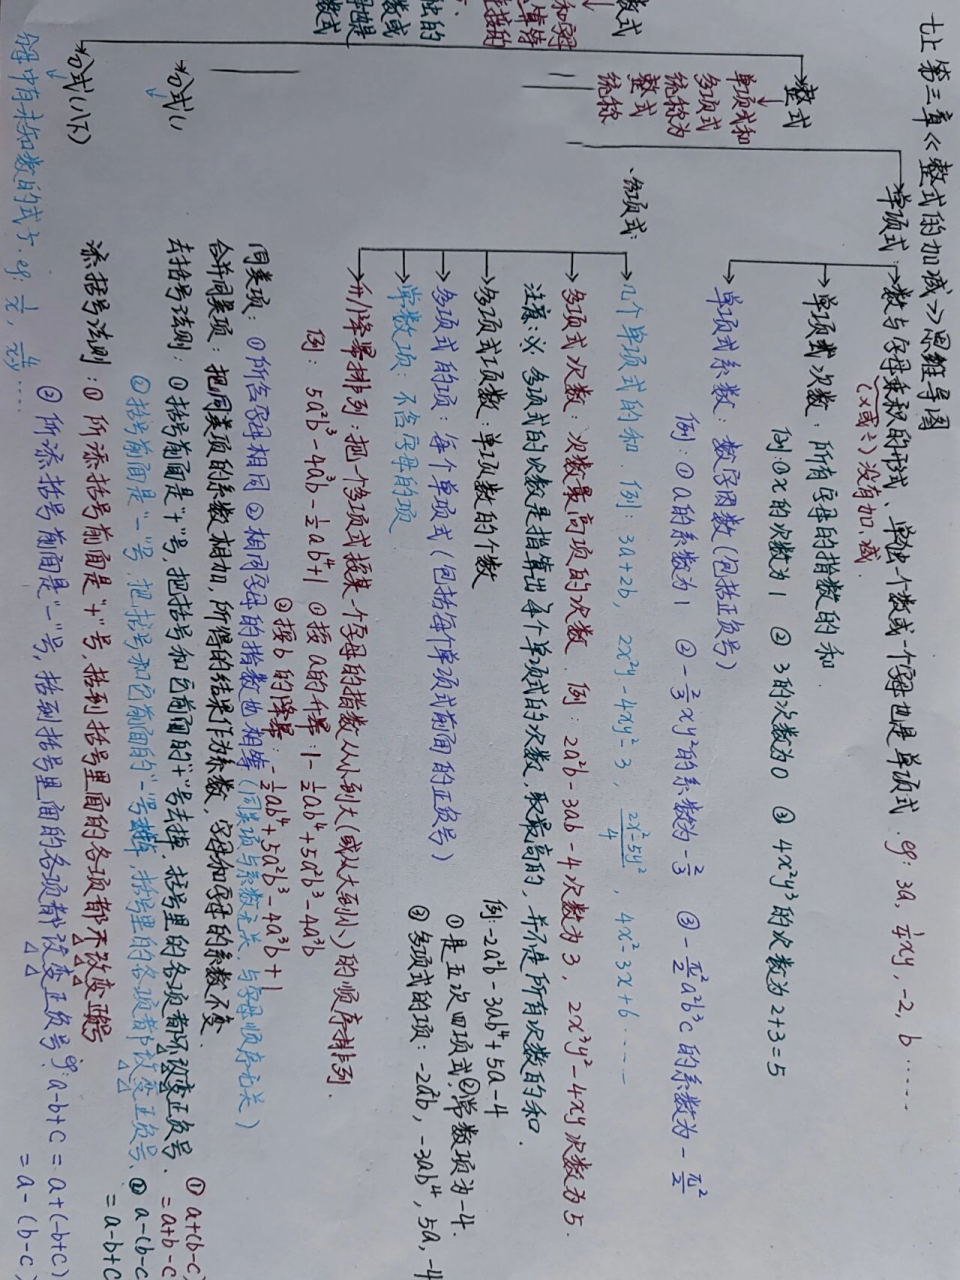 七上 第三章《整式的加减》思维导图
整式
单项式和
多项式
统称为
整式
统称
单项式:
数与字母乘积的形式、单独一个数或一个字母也是单项式. eg: 3a, xy, -2, b ……
(×或÷)没有加、减.
单项式次数: 所有字母的指数的和.
例:①x的次数为1 ② 3的次数为0 ③ 4x²y³的次数为2+3=5
单项式系数: 数字因数(包括正负号)
例: ①a的系数为1 ②-⅔xy²的系数为-⅔ ③-π²/2 a²b³c的系数为-π²/2
多项式:
几个单项式的和. 例: 3a+2b, 2x²y-4xy²-3, (2x²-5y²)/4, 4x²-3x+6 ……
多项式次数: 次数最高项的次数. 例: 2a²b-3ab-4次数为3, 2x³y²-4xy次数为5.
注意:※多项式的次数是指算出每个单项式的次数,取最高的,并不是所有次数的和.
多项式项数: 单项数的个数
例:-2a²b-3ab⁴+5a-4
①是五次四项式.②常数项为-4.
多项式的项: 每个单项式(包括每个单项式前面的正负号)
③多项式的项: -2a²b, -3ab⁴, 5a, -4
常数项: 不含字母的项
升/降幂排列: 把一个多项式按某一个字母的指数从小到大(或从大到小)的顺序排列.
例: 5a²b³-4a³b-½ab⁴+1 ①按a的升幂: 1-½ab⁴+5a²b³-4a³b
②按b的降幂: -½ab⁴+5a²b³-4a³b+1
同类项: ①所含字母相同 ②相同字母的指数也相等(同类项与系数无关,与字母顺序无关)
合并同类项: 把同类项的系数相加,所得的结果作为系数,字母和字母的系数不变.
去括号法则: ①括号前面是"+"号,把括号和它前面的"+"号去掉,括号里的各项都不改变正负号. ① a+(b-c)
=a+b-c
②括号前面是"-"号,把括号和它前面的"-"号去掉,括号里的各项都改变正负号. ② a-(b-c
=a-b+c
添括号法则: ①所添括号前面是"+"号,括到括号里面的各项都不改变正负号
②所添括号前面是"-"号,括到括号里面的各项都改变正负号. eg: a-b+c=a+(-b+c)
=a-(b-c)
数式
独的
数或
数式
字母中有未知数的式子. eg: